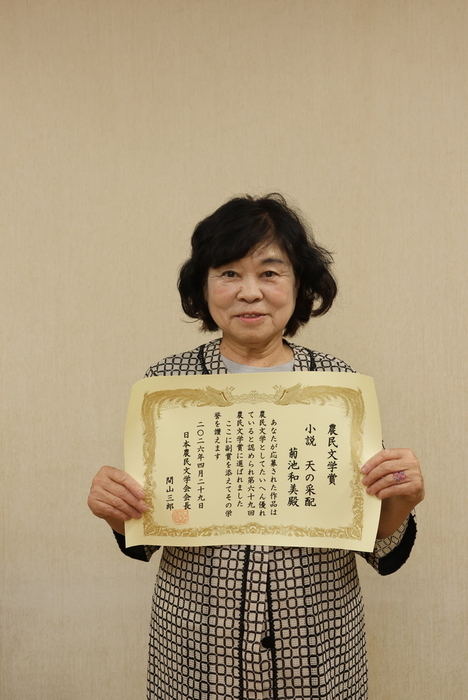 農民文学賞
小説　天の采配
菊池和美殿
あなたが応募された作品は
農民文学としてたいへん優れ
ていると認められ第六十九回
農民文学賞に選ばれました
ここに副賞を添えてその栄
誉を讃えます
二〇二六年四月二十九日
日本農民文学会会長
関山三郎